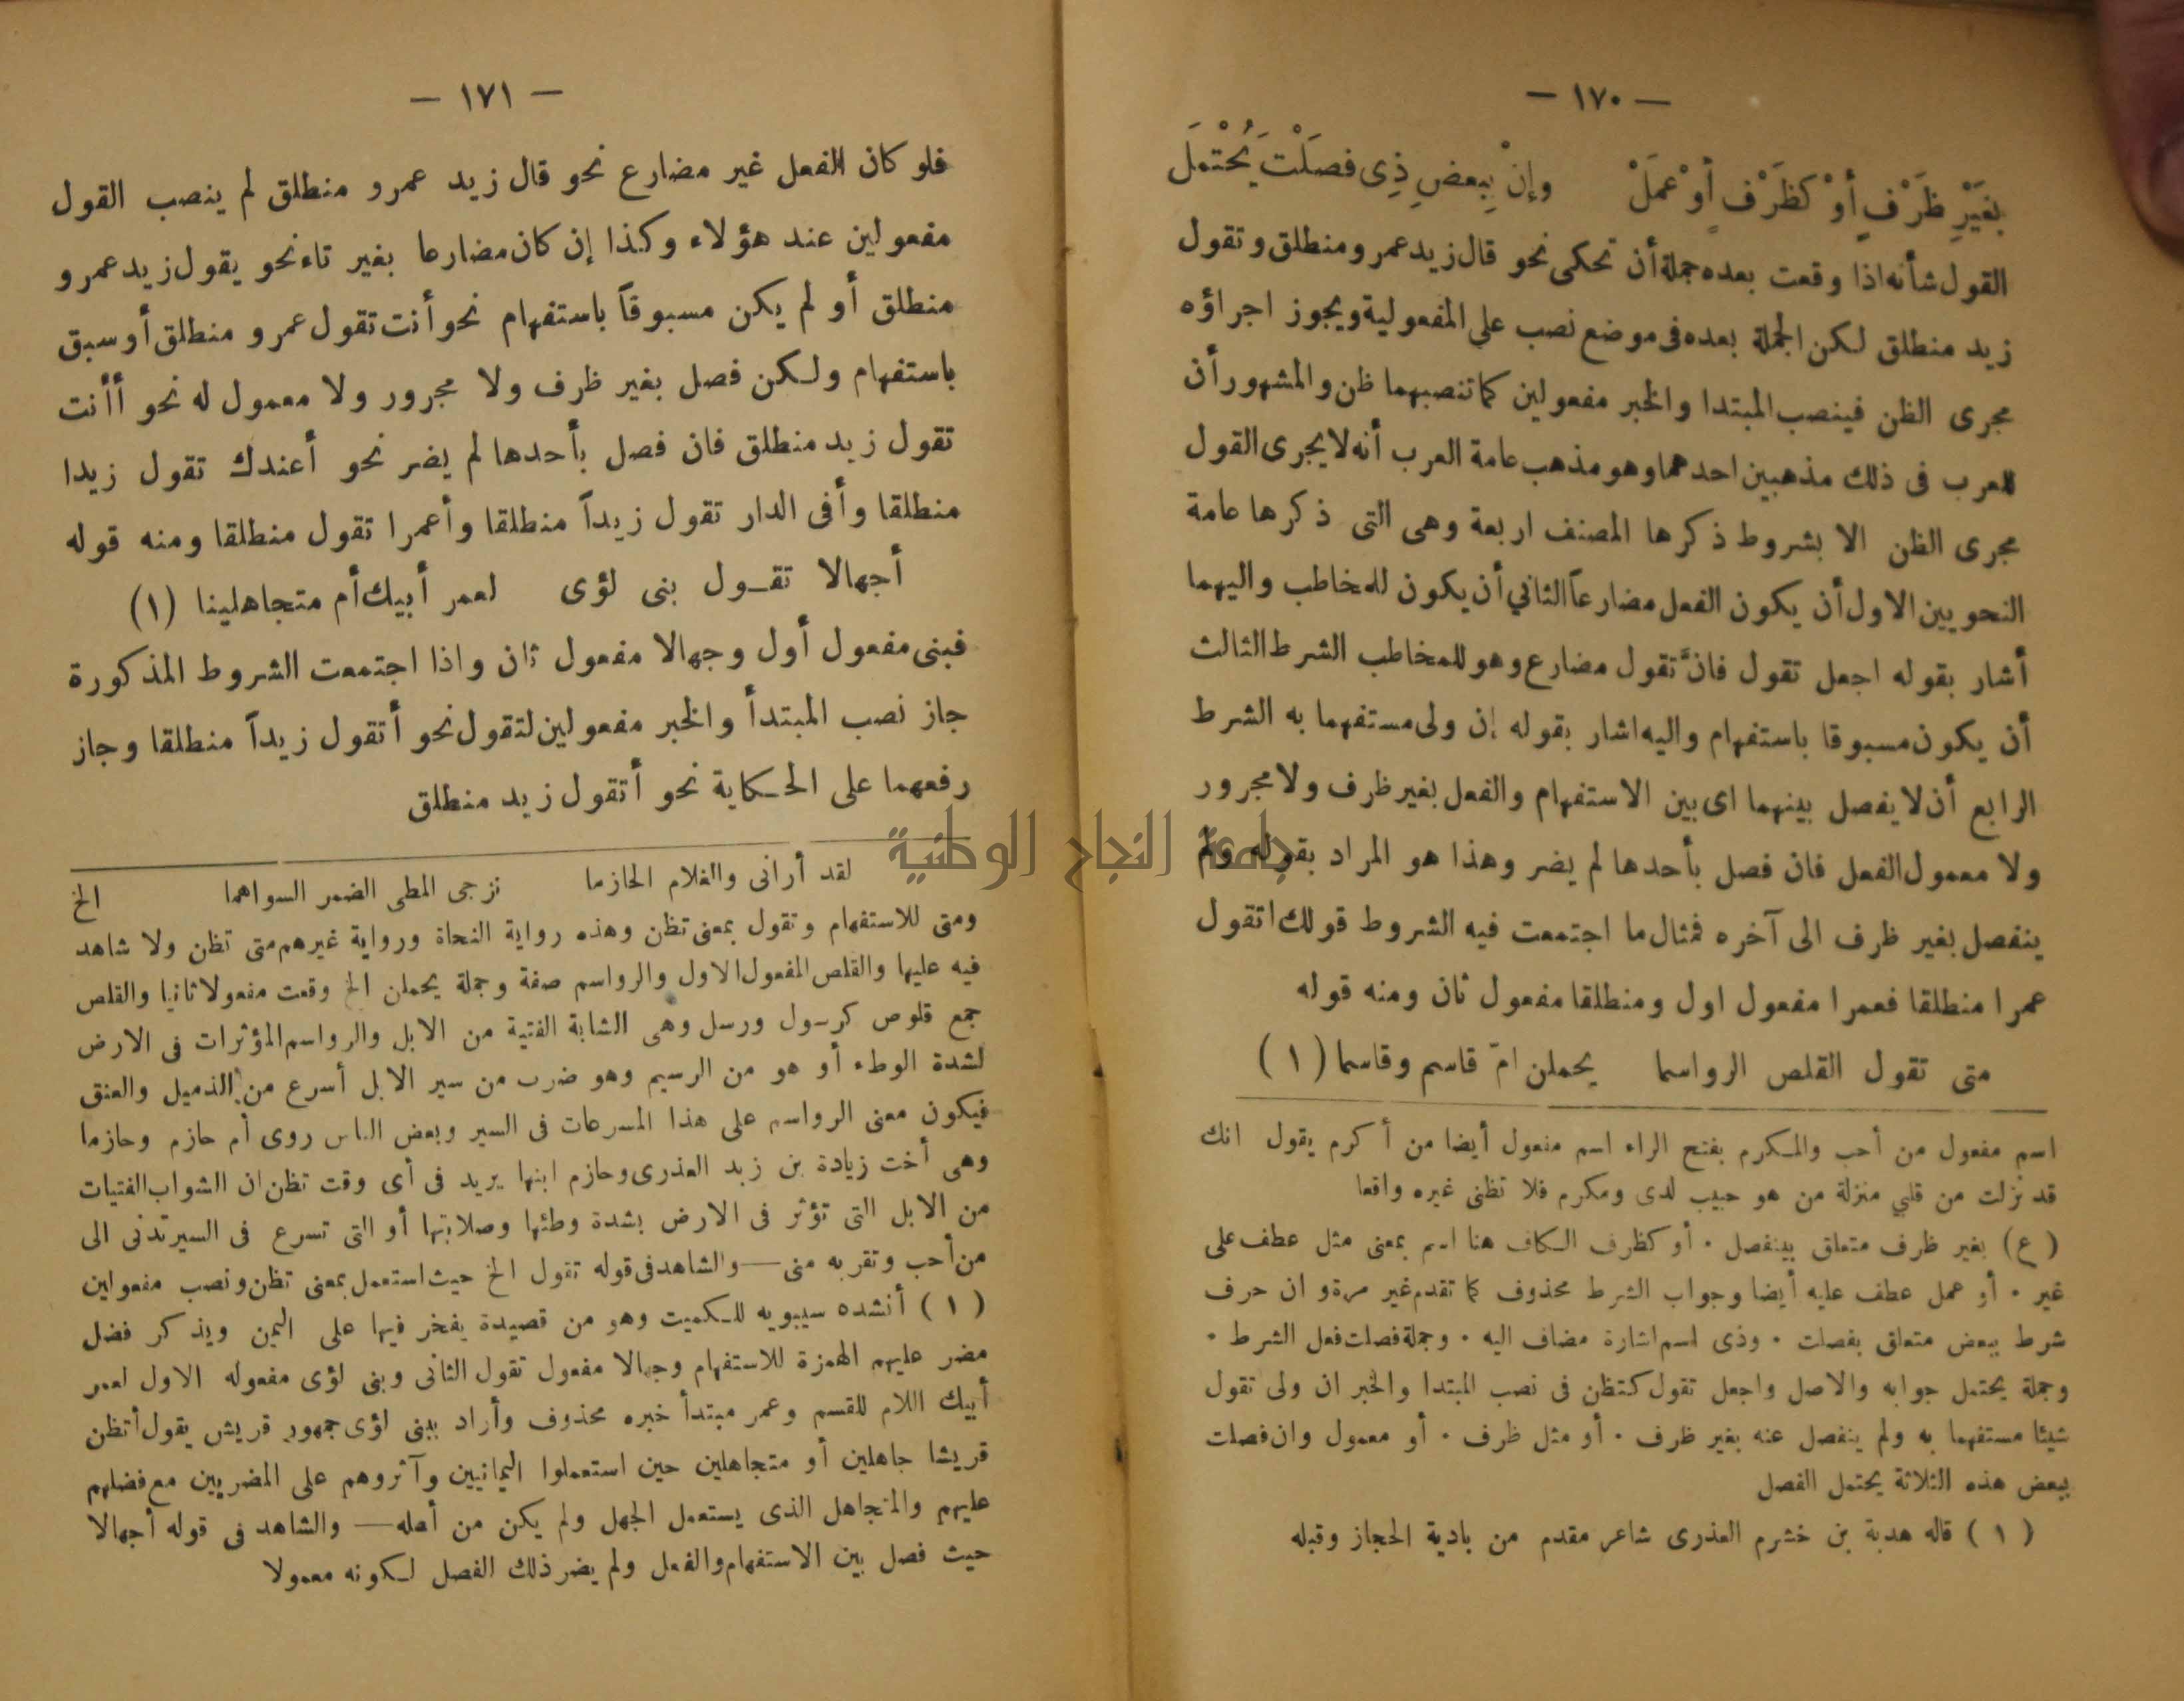 — ١٧٠ —
بِغَيْرِ ظَرْفٍ أَوْ كَظَرْفٍ أَوْ عَمَلْ وإِنْ بِبعضِ ذِى فصَلْتَ يُحْتمَلَ
القول شأنه اذا وقعت بعده جملة أن تحكى نحو قال زيد عمرو منطلق وتقول
زيد منطلق لكن الجملة بعده فى موضع نصب على المفعولية ويجوز اجراؤه
مجرى الظن فينصب المبتدا والخبر مفعولين كما تنصبهما ظن والمشهور أن
للعرب فى ذلك مذهبين احدهما وهو مذهب عامة العرب أنه لا يجرى القول
مجرى الظن الا بشروط ذكرها المصنف اربعة وهى التى ذكرها عامة
النحويين الاول أن يكون الفعل مضارعاً الثاني أن يكون للمخاطب واليهما
أشار بقوله اجعل تقول فانَّ تقول مضارع وهو للمخاطب الشرط الثالث
أن يكون مسبوقا باستفهام واليه اشار بقوله إن ولى مستفهما به الشرط
الرابع أن لا يفصل بينهما اى بين الاستفهام والفعل بغير ظرف ولا مجرور
ولا معمول الفعل فان فصل بأحدها لم يضر وهذا هو المراد بقوله ولم
ينفصل بغير ظرف الى آخره فمثال ما اجتمعت فيه الشروط قولك اتقول
عمرا منطلقا فعمرا مفعول اول ومنطلقا مفعول ثان ومنه قوله
متى تقول القلص الرواسما يحملن امّ قاسم وقاسما (١)
اسم مفعول من أحب والمكرم بفتح الراء اسم مفعول أيضا من أكرم يقول انك
قد نزلت من قلبي منزلة من هو حبيب لدى ومكرم فلا تظنى غيره واقعا
(ع) بغير ظرف متعلق بينفصل . أو كظرف الكاف هنا اسم بمعنى مثل عطف على
غير . أو عمل عطف عليه أيضا وجواب الشرط محذوف كما تقدم غير مرة وان حرف
شرط ببعض متعلق بفصلت . وذى اسم اشارة مضاف اليه . وجملة فصلت فعل الشرط .
وجملة يحتمل جوابه والاصل واجعل تقول كتظن فى نصب المبتدا والخبر ان ولى تقول
شيئا مستفهما به ولم ينفصل عنه بغير ظرف . أو مثل ظرف . أو معمول وان فصلت
ببعض هذه الثلاثة يحتمل الفصل
(١) قاله هدبة بن خشرم العذرى شاعر مقدم من بادية الحجاز وقبله
— ١٧١ —
فلو كان الفعل غير مضارع نحو قال زيد عمرو منطلق لم ينصب القول
مفعولين عند هؤلاء وكذا إن كان مضارعا بغير تاء نحو يقول زيد عمرو
منطلق أو لم يكن مسبوقاً باستفهام نحو أنت تقول عمرو منطلق أو سبق
باستفهام ولكن فصل بغير ظرف ولا مجرور ولا معمول له نحو أأنت
تقول زيد منطلق فان فصل بأحدها لم يضر نحو أعندك تقول زيدا
منطلقا وأفى الدار تقول زيداً منطلقا وأعمرا تقول منطلقا ومنه قوله
أجهالا تقـول بنى لؤى لعمر أبيك أم متجاهلينا (١)
فبنى مفعول أول وجهالا مفعول ثان واذا اجتمعت الشروط المذكورة
جاز نصب المبتدأ والخبر مفعولين لتقول نحو أتقول زيداً منطلقا وجاز
رفعهما على الحكاية نحو أتقول زيد منطلق
لقد أرانى والغلام الحازما نزجى المطى الضمر السواهما الخ
ومتى للاستفهام وتقول بمعنى تظن وهذه رواية النحاة ورواية غيرهم متى تظن ولا شاهد
فيه عليها والقلص المفعول الاول والرواسم صفة وجملة يحملن الخ وقعت مفعولا ثانيا والقلص
جمع قلوص كرسول ورسل وهى الشابة الفتية من الابل والرواسم المؤثرات فى الارض
لشدة الوطء أو هو من الرسيم وهو ضرب من سير الابل أسرع من الذميل والعنق
فيكون معنى الرواسم على هذا المسرعات فى السير وبعض الناس روى أم حازم وحازما
وهى أخت زيادة بن زيد العذرى وحازم ابنها يريد فى أى وقت تظن ان الشواب الفتيات
من الابل التى تؤثر فى الارض بشدة وطئها وصلابتها أو التى تسرع فى السير تدنى الى
من أحب وتقربه منى — والشاهد فى قوله تقول الخ حيث استعمل بمعنى تظن ونصب مفعولين
(١) أنشده سيبويه للكميت وهو من قصيدة يفخر فيها على اليمن ويذكر فضل
مضر عليهم الهمزة للاستفهام وجهالا مفعول تقول الثانى وبنى لؤى مفعوله الاول لعمر
أبيك اللام للقسم وعمر مبتدأ خبره محذوف وأراد ببنى لؤى جمهور قريش يقول أتظن
قريشا جاهلين أو متجاهلين حين استعملوا اليمانيين وآثروهم على المضريين مع فضلهم
عليهم والمتجاهل الذى يستعمل الجهل ولم يكن من أهله — والشاهد فى قوله أجهالا
حيث فصل بين الاستفهام والفعل ولم يضر ذلك الفصل لكونه معمولا
جامعة النجاح الوطنية